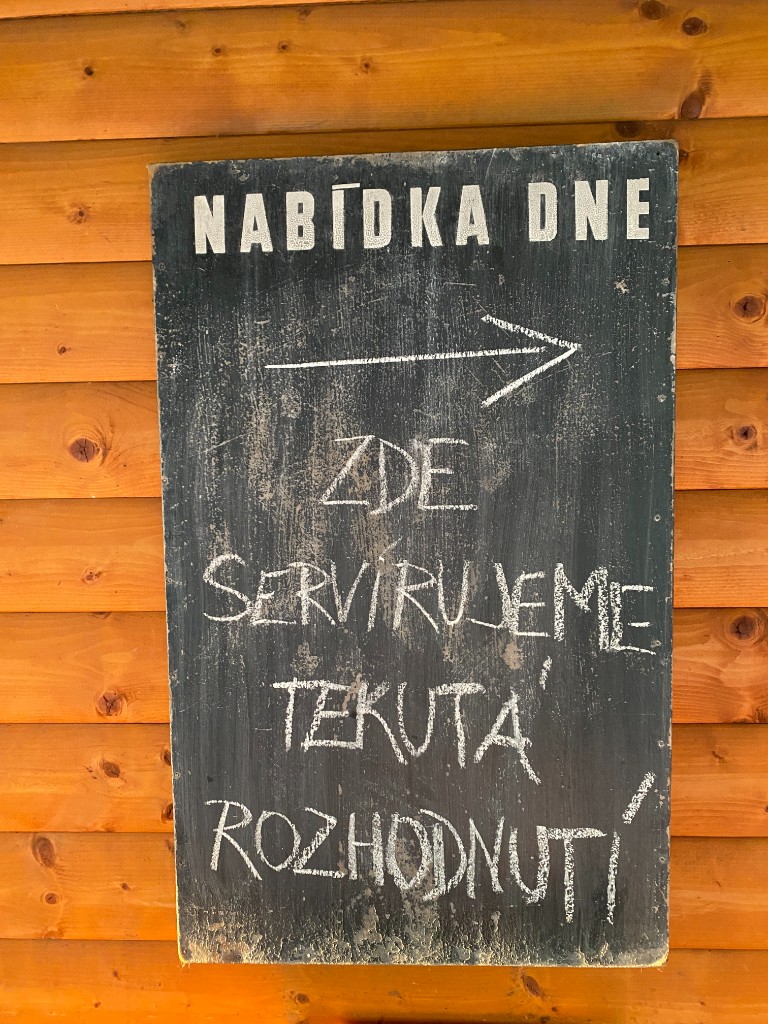 NABÍDKA DNE
ZDE
SERVÍRUJEME
TEKUTÁ
ROZHODNUTÍ